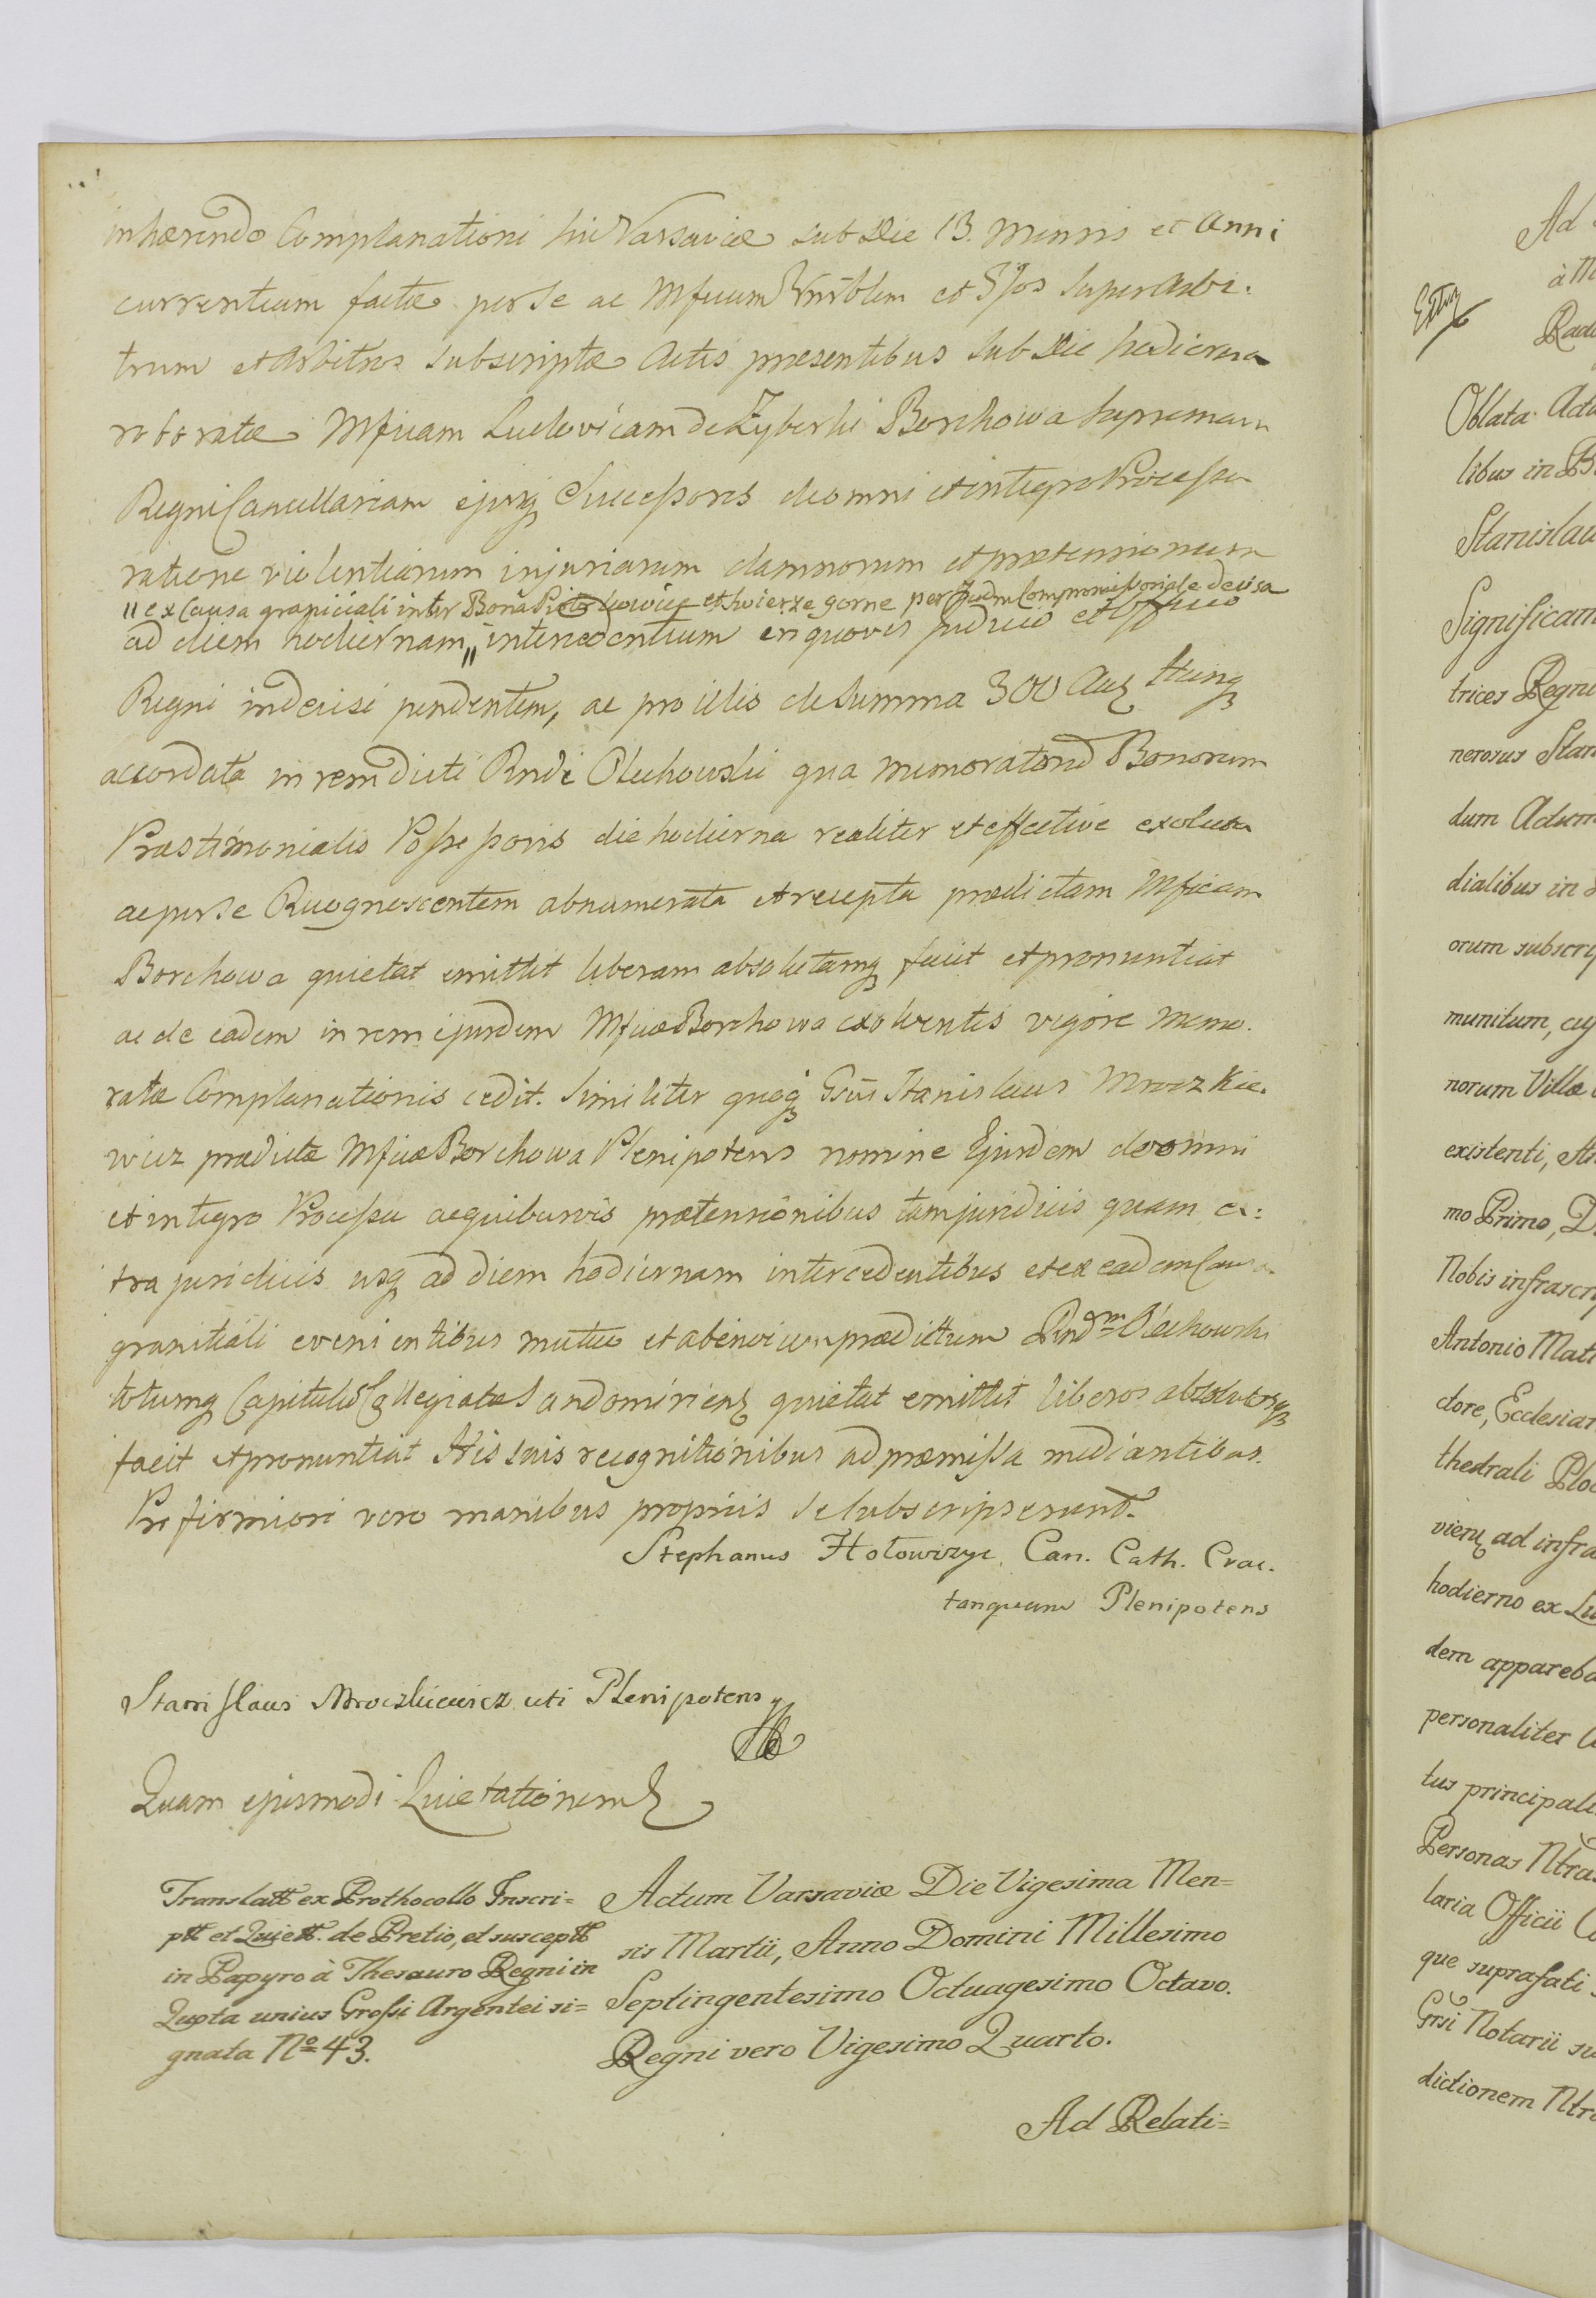 inhærendo Complanationi hic Varsaviæ sub Die 13. Mensis et Anni
currentium factæ per se ac Mficum Vrnblem et Gsos Superarbi-
trum et Arbitros subscriptæ Actis præsentibus sub Die hodierna
roboratæ Mficam Ludovicam de Zyberki Borchowa Supremam
Regni Cancellariam ejusq Successores de omni et integro Processu
ratione violentiarum injuriarum damnorum et prætensionum
" ex Causa graniciali inter Bona Piotrkowice et Swierze gorne per Judm Compromissoriale decisa
ad diem hodiernam " intercedentium in quovis judicio et officio
Regni indecisi pendentem, ac pro illis de summa 300 Auz Hung
accordata in rem dicti Rndi Olechowski qua memoratorum Bonorum
Præstimonialis Possessoris die hodierna realiter et effective exoluta
ac per se Recognoscentem abnumerata et recepta prædictam Mficam
Borchowa quietat emittit liberam absolutamq facit et pronuntiat
ac de eadem in rem ejusdem Mficæ Borchowa exolventis vigore memo-
ratæ Complanationis cedit. Similiter quoq Gsus Stanislaus Mroczkie-
wicz prædictæ Mficæ Borchowa Plenipotens nomine Ejusdem de omni
et integro Processu ac quibusvis prætensionibus tam juridicis quam ex:
tra juridicis usq ad diem hodiernam intercedentibus et ex eadem Causa
granitiali evenientibus mutuo et abinvicem prædictum Rndm Olechowski
totumq Capitulum Collegiatæ Sandomiriens quietat emittit liberos absolutosq
facit et pronuntiat His suis recognitionibus ad præmissa mediantibus.
Pro firmiori vero manibus propriis se subscripserunt.
Stephanus Hołowczyc Can. Cath. Crac.
tanquam Plenipotens
Stanislaus Mroczkiewicz uti Plenipotens
Quam ejusmodi Quietationem
Translatt ex Prothocollo Inscri=
ptt et Quiett. de Pretio, et susceptt
in Papyro à Thesauro Regni in
Quota unius Grossi Argentei si=
gnata No 43.
Actum Varsaviæ Die Vigesima Men=
sis Martii, Anno Domini Millesimo
Septingentesimo Octuagesimo Octavo.
Regni vero Vigesimo Quarto.
Ad Relati=
Ad
Rad
Oblata Act
libus in B
Stanislau
Significam
trices Regni
nerosus Stan
dum Actum
dialibus in
orum subscrip
munitum, cuj
norum Villæ
existenti, Sta
mo Primo, D
Nobis infrascri
Antonio Mat
ctore, Ecclesiar
thedrali Ploc
viens ad infra
hodierno ex Lu
dem appareba
personaliter
tus principali
Personas Ntras
laria Officii C
que suprafati
Grsi Notarii su
dictionem Ntra